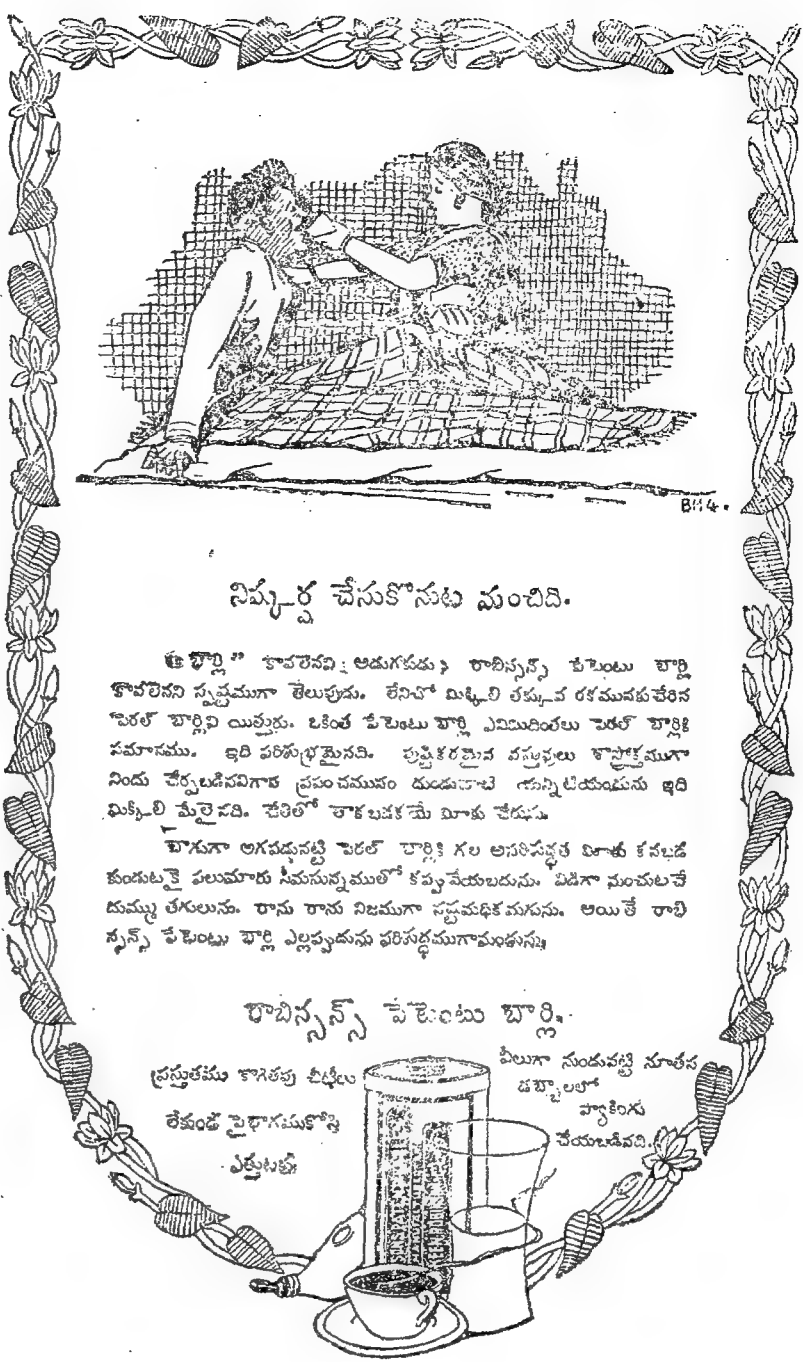 BM 4.
నిష్కర్ష చేసుకొనుట మంచిది.
"బార్లి" కావలెనని అడుగకుడు; రాబిన్సన్స్ పేటెంటు బార్లి
కావలెనని స్పష్టముగా తెలుపుడు. లేనిచో మిక్కిలి తక్కువ రకమునకుచేరిన
పెరల్ బార్లిని యిత్తురు. ఒకింత పేటెంటు బార్లి ఎనిమిదింతలు పెరల్ బార్లికి
సమానము. ఇది పరిశుభ్రమైనది. పుష్టికరమైన వస్తువులు శాస్త్రోక్తముగా
నిందు చేర్చబడినవిగాన ప్రపంచమునం దుండువాటి యన్నిటియందును ఇది
మిక్కిలి మేలైనది. చేతితో తాకబడకయే మీకు చేరును.
బాగుగా అగపడునట్టి పెరల్ బార్లికి గల అపరిశుద్ధత మీకు కనబడ
కుండుటకై పలుమారు సీమసున్నముతో కప్పివేయబడును. విడిగా నుంచుటచే
దుమ్ము తగులును. రాను రాను నిజముగా నష్టమధికమగును. అయితే రాబి
న్సన్స్ పేటెంటు బార్లి ఎల్లప్పుడును పరిశుద్ధముగానుండును.
రాబిన్సన్స్ పేటెంటు బార్లి.
ప్రస్తుతము కాగితపు చీటీలు
లేకుండ పైభాగముకోసి
ఎత్తుటకు
వీలుగా నుండునట్టి నూతన
డబ్బాలలో
ప్యాకింగు
చేయబడినది.